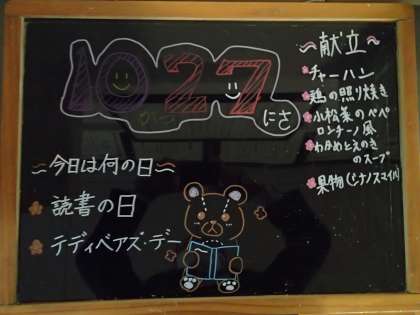 10 27
がつ
にち
〜今日は何の日〜
読書の日
テディベアズ・デー
〜献立〜
チャーハン
鶏の照り焼き
小松菜のペペ
ロンチーノ風
わかめとえのき
のスープ
果物(シナノスマイル)